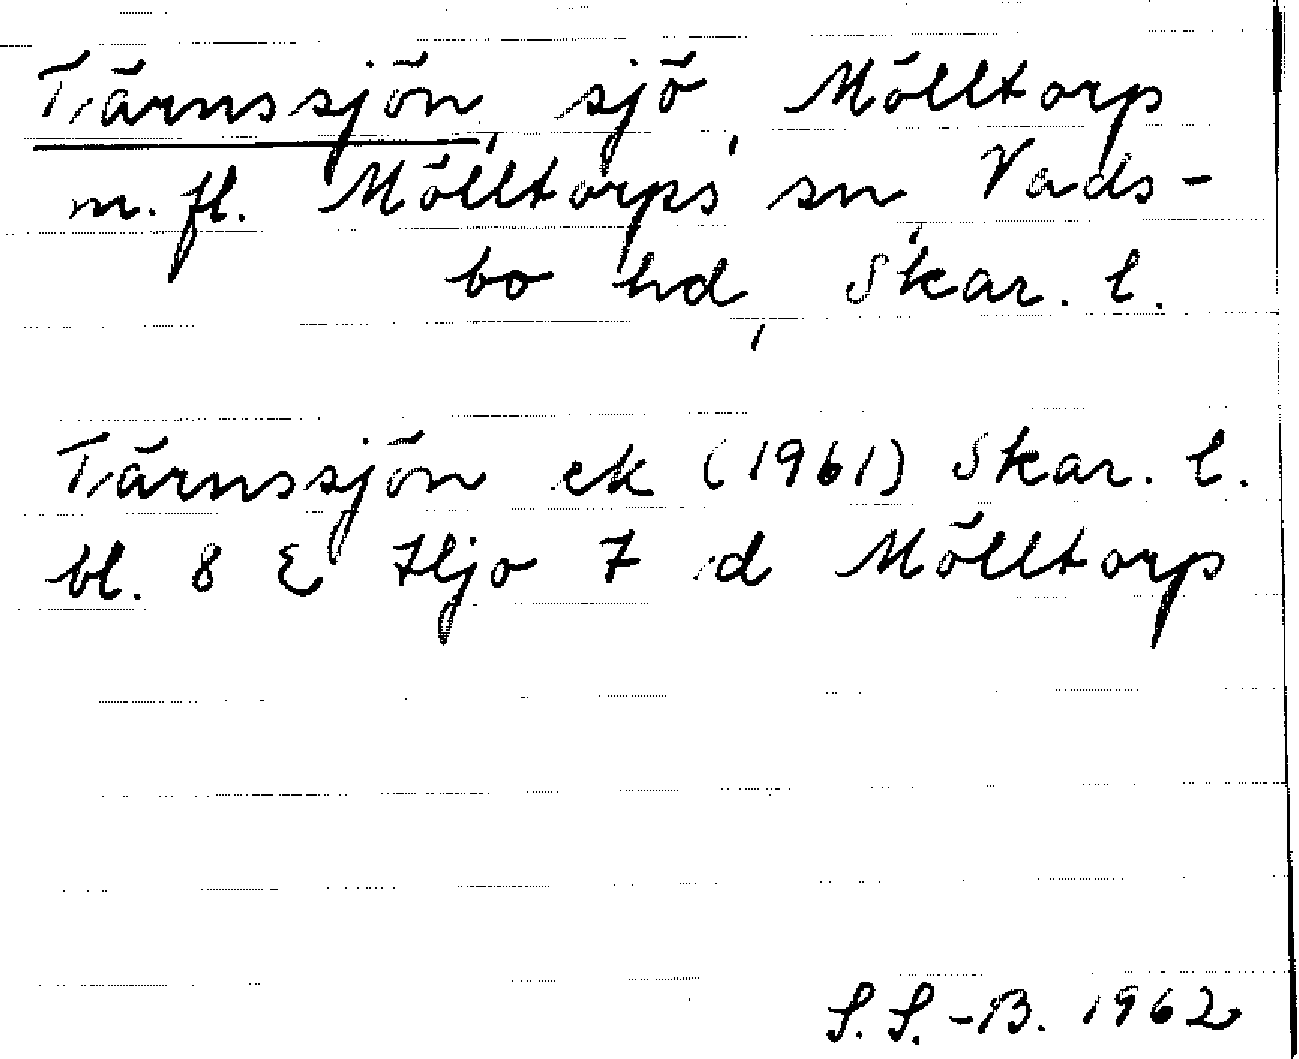 Tärnssjön, sjö, Mölltorp
m. fl. Mölltorps sn, Vads-
bo hd, Skar. l.
Tärnssjön ek (1961) Skar. l.
bl. 8 E Hjo 7 d Mölltorp
S. S.-B. 1962